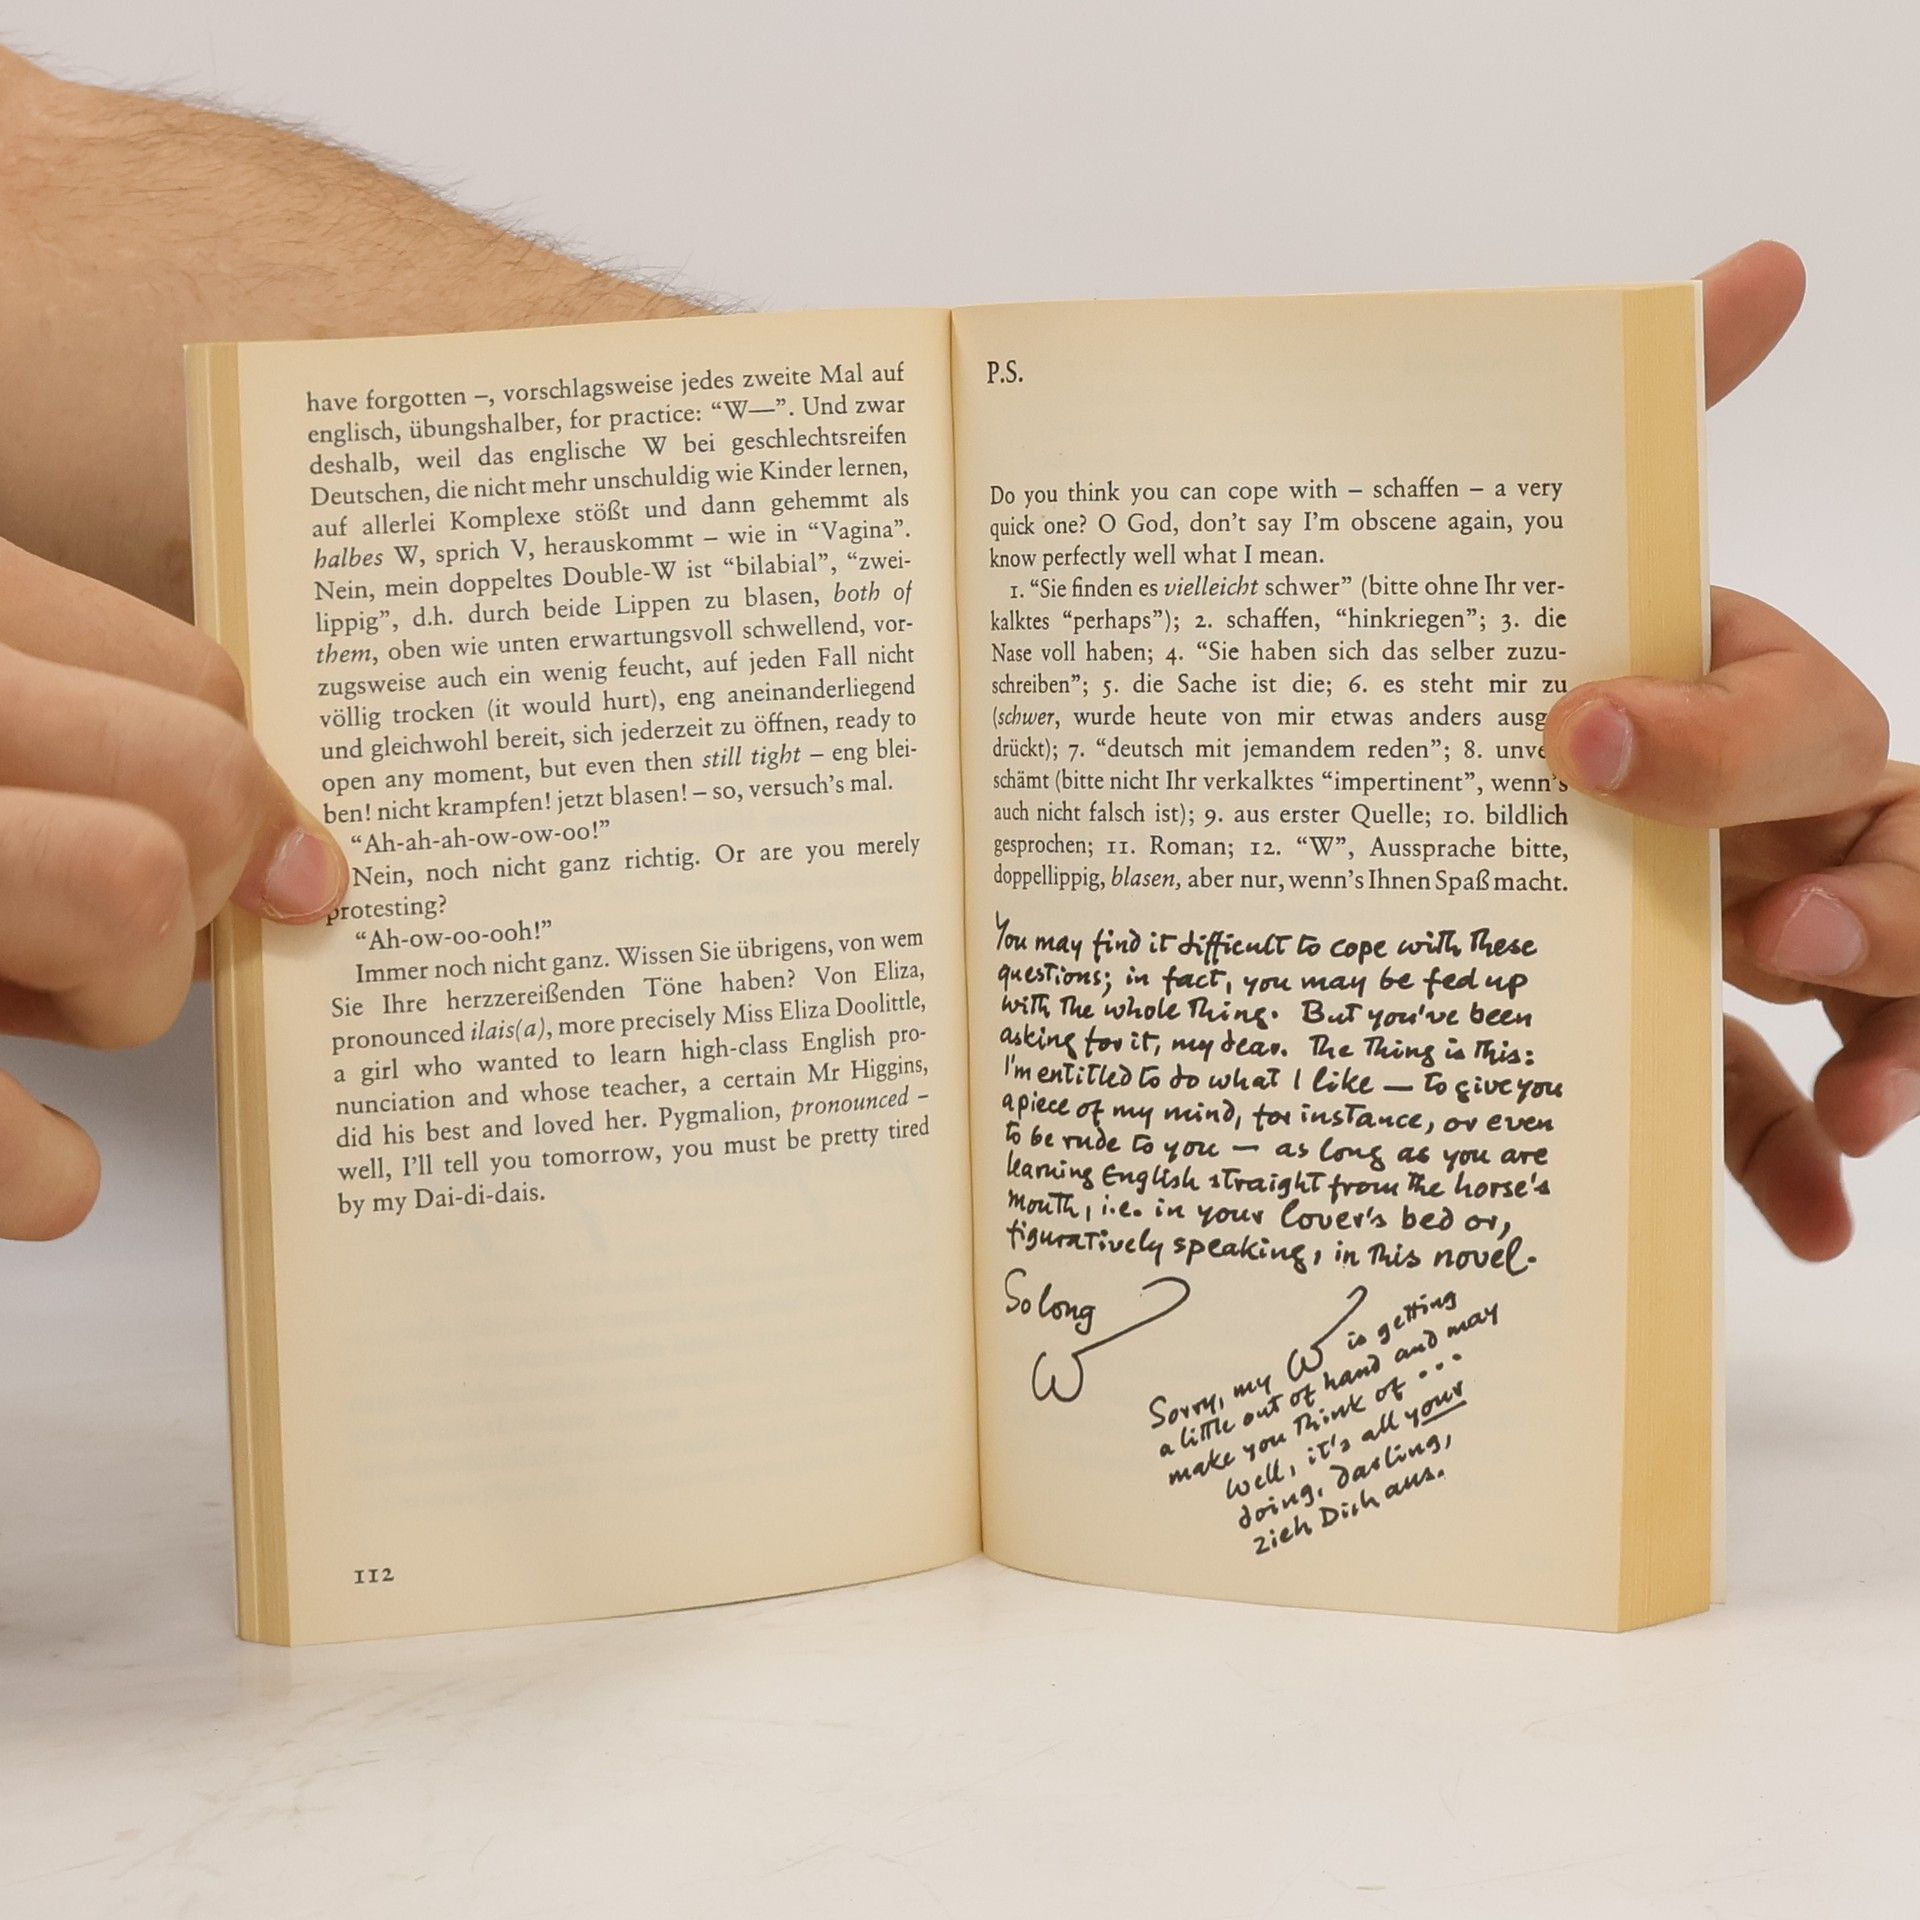 have forgotten –, vorschlagsweise jedes zweite Mal auf
englisch, übungshalber, for practice: “W—”. Und zwar
deshalb, weil das englische W bei geschlechtsreifen
Deutschen, die nicht mehr unschuldig wie Kinder lernen,
auf allerlei Komplexe stößt und dann gehemmt als
halbes W, sprich V, herauskommt – wie in “Vagina”.
Nein, mein doppeltes Double-W ist “bilabial”, “zwei-
lippig”, d.h. durch beide Lippen zu blasen, both of
them, oben wie unten erwartungsvoll schwellend, vor-
zugsweise auch ein wenig feucht, auf jeden Fall nicht
völlig trocken (it would hurt), eng aneinanderliegend
und gleichwohl bereit, sich jederzeit zu öffnen, ready to
open any moment, but even then still tight – eng blei-
ben! nicht krampfen! jetzt blasen! – so, versuch’s mal.
“Ah-ah-ah-ow-ow-oo!”
Nein, noch nicht ganz richtig. Or are you merely
protesting?
“Ah-ow-oo-ooh!”
Immer noch nicht ganz. Wissen Sie übrigens, von wem
Sie Ihre herzzereißenden Töne haben? Von Eliza,
pronounced ilais(a), more precisely Miss Eliza Doolittle,
a girl who wanted to learn high-class English pro-
nunciation and whose teacher, a certain Mr Higgins,
did his best and loved her. Pygmalion, pronounced –
well, I’ll tell you tomorrow, you must be pretty tired
by my Dai-di-dais.
112
P.S.
Do you think you can cope with – schaffen – a very
quick one? O God, don’t say I’m obscene again, you
know perfectly well what I mean.
1. “Sie finden es vielleicht schwer” (bitte ohne Ihr ver-
kalktes “perhaps”); 2. schaffen, “hinkriegen”; 3. die
Nase voll haben; 4. “Sie haben sich das selber zuzu-
schreiben”; 5. die Sache ist die; 6. es steht mir zu
(schwer, wurde heute von mir etwas anders ausg
drückt); 7. “deutsch mit jemandem reden”; 8. unve
schämt (bitte nicht Ihr verkalktes “impertinent”, wenn’s
auch nicht falsch ist); 9. aus erster Quelle; 10. bildlich
gesprochen; 11. Roman; 12. “W”, Aussprache bitte,
doppellippig, blasen, aber nur, wenn’s Ihnen Spaß macht.
You may find it difficult to cope with these
questions; in fact, you may be fed up
with the whole thing. But you've been
asking for it, my dear. The thing is this:
I'm entitled to do what I like — to give you
a piece of my mind, for instance, or even
to be rude to you — as long as you are
learning English straight from the horse's
mouth, i.e. in your lover's bed or,
figuratively speaking, in this novel.
So long
W
Sorry, my W is getting
a little out of hand and may
make you think of ...
Well, it's all your
doing, darling,
zieh Dich aus.